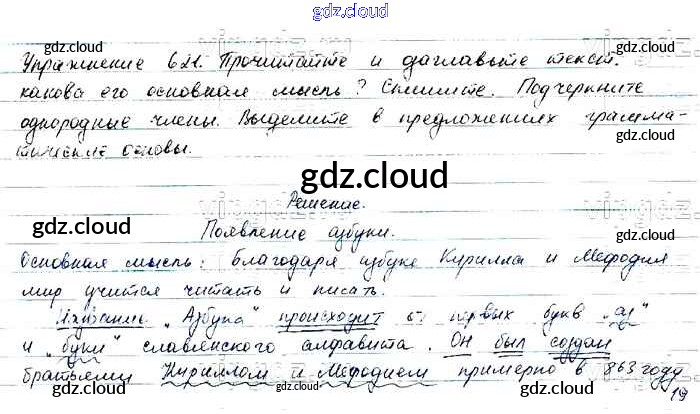 gdz.cloud
gdz.cloud gdz.cloud
Упражнение 621. Прочитайте и озаглавьте текст.
какова его основная мысль? Спишите. Подчеркните
однородные члены. Выделите в предложениях грамма-
тические основы.
gdz.cloud
Решение.
gdz.cloud gdz.cloud
Появление азбуки.
Основная мысль: благодаря азбуке Кирилла и Мефодия
мир учится читать и писать.
"Азбука" происходит от первых букв "аз"
и "буки" славянского алфавита. Он был создан
gdz.cloud gdz.cloud
братьями Кириллом и Мефодием примерно в 863 году
19